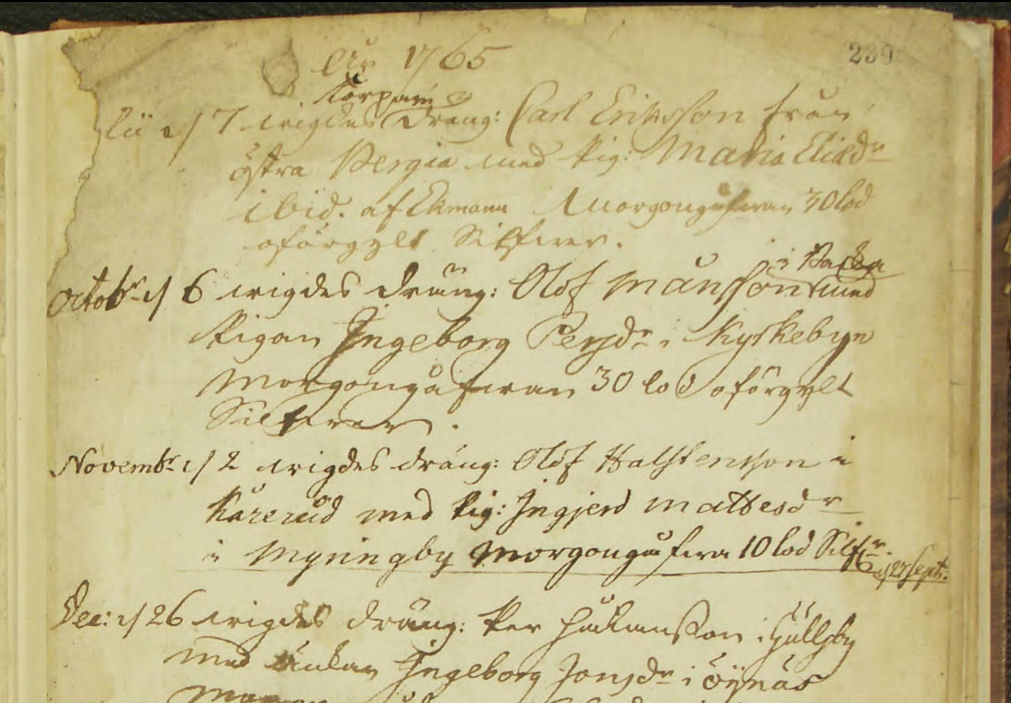 År 1765
239
Korpam
d/ 7 wigdes Dräng: Carl Ericsson från
östra Bergia med Pig: Maria Eliædr
ibid. af Ekmann Morgongåfwan 30 lod
oförgylt Silfwer.
i Backa
Octobr d/ 6 wigdes Dräng: Olof Månsson med
Pigan Ingeborg Persdr i Kyrkebyn
Morgongåfwan 30 lod oförgylt
Silfwer.
Novembr d/ 2 wigdes dräng: Olof Halstensson i
Kårerud med Pig: Ingjerd Mattesdr
i Myringby Morgongåfwa 10 lod Silfr.
d/27 Sept:
Dec: d/ 26 wigdes Dräng: Per Håkansson i Gullsby
med Enkan Ingeborg Jonsdr i Öjenäs